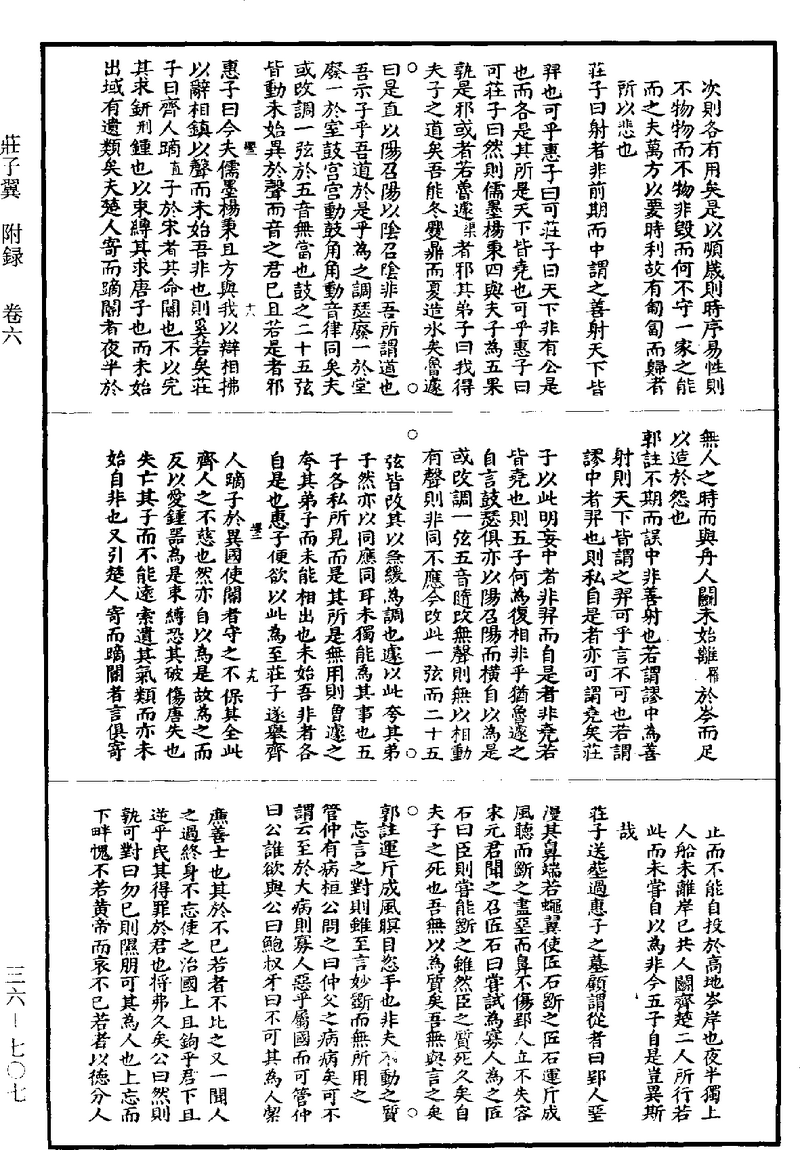 次則各有用矣是以順歲則時序易性則
不物物而不物非毀而何不守一家之能
而之夫萬方以要時利故有匍匐而歸者
所以悲也
莊子曰射者非前期而中謂之善射天下皆
羿也可乎惠子曰可莊子曰天下非有公是
也而各是其所是天下皆堯也可乎惠子曰
可莊子曰然則儒墨楊秉四與夫子為五果
孰是邪或者若魯遽渠者邪其弟子曰我得
夫子之道矣吾能冬爨鼎而夏造冰矣魯遽
曰是直以陽召陽以陰召陰非吾所謂道也
吾示子乎吾道於是乎為之調瑟廢一於堂
廢一於室鼓宮宮動鼓角角動音律同矣夫
或改調一弦於五音無當也鼓之二十五弦
皆動未始異於聲而音之君已且若是者邪
惠子曰今夫儒墨楊秉且方與我以辯相拂
以辭相鎮以聲而未始吾非也則奚若矣莊
子曰齊人蹢直子於宋者其命閽也不以完
其求鈃刑鍾也以束縛其求唐子也而未始
出域有遺類矣夫楚人寄而蹢閽者夜半於
無人之時而與舟人鬭未始離罹於岑而足
以造於怨也
郭註不期而誤中非善射也若謂謬中為善
射則天下皆謂之羿可乎言不可也若謂
謬中者羿也則私自是者亦可謂堯矣莊
子以此明妄中者非羿而自是者非堯若
皆堯也則五子何為復相非乎猶魯遽之
自言鼓瑟俱亦以陽召陽而橫自以為是
或改調一弦五音隨改無聲則無以相動
有聲則非同不應今改此一弦而二十五
弦皆改其以急緩為調也遽以此夸其弟
子然亦以同應同耳未獨能為其事也五
子各私所見而是其所是無用則魯遽之
夸其弟子而未能相出也未始吾非者各
自是也惠子便欲以此為至莊子遂舉齊
人蹢子於異國使閽者守之不保其全此
齊人之不慈也然亦自以為是故為之而
反以愛鍾器為是束縛恐其破傷唐失也
失亡其子而不能遠索遺其氣類而亦未
始自非也又引楚人寄而蹢閽者言俱寄
止而不能自投於高地岑岸也夜半獨上
人船未離岸已共人鬭齊楚二人所行若
此而未嘗自以為非今五子自是豈異斯
哉
莊子送葬過惠子之墓顧謂從者曰郢人堊
漫其鼻端若蠅翼使匠石斲之匠石運斤成
風聽而斲之盡堊而鼻不傷郢人立不失容
宋元君聞之召匠石曰嘗試為寡人為之匠
石曰臣則嘗能斲之雖然臣之質死久矣自
夫子之死也吾無以為質矣吾無與言之矣
郭註運斤成風瞑目恣手也非夫不動之質
忘言之對則雖至言妙斲而無所用之
管仲有病桓公問之曰仲父之病病矣可不
謂云至於大病則寡人惡乎屬國而可管仲
曰公誰欲與公曰鮑叔牙曰不可其為人絜
廉善士也其於不已若者不比之又一聞人
之過終身不忘使之治國上且鉤乎君下且
逆乎民其得罪於君也將弗久矣公曰然則
孰可對曰勿已則隰朋可其為人也上忘而
下畔愧不若黃帝而哀不已若者以德分人
莊子翼 附録 卷六
三六—七〇七